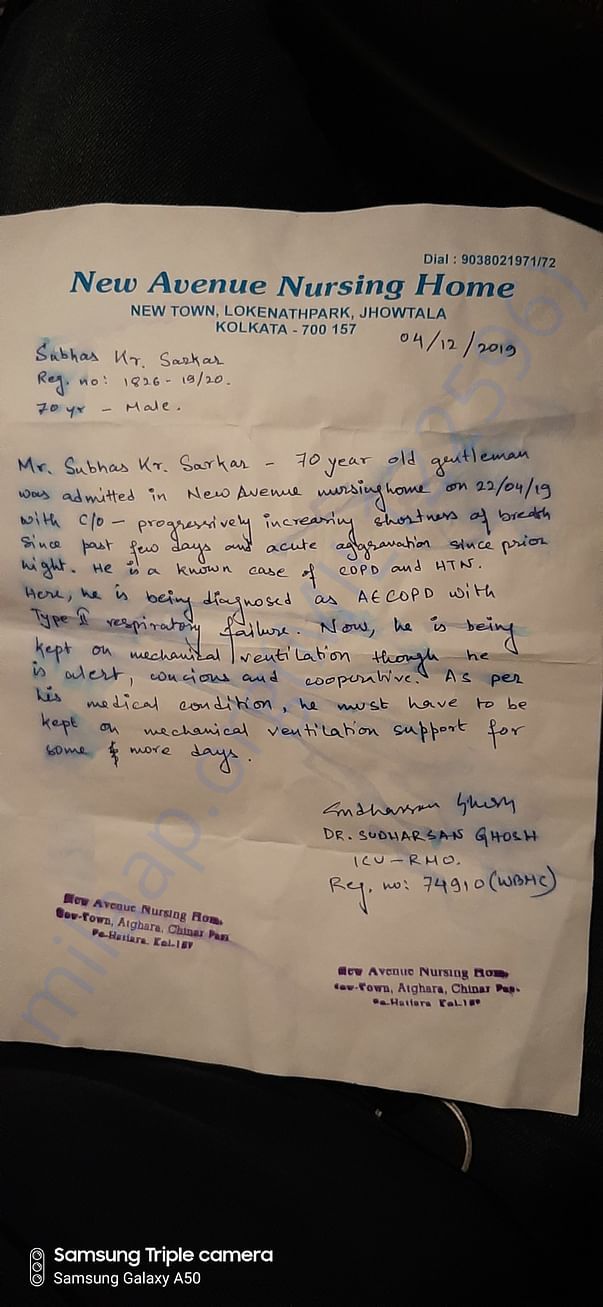 Dial : 9038021971/72
New Avenue Nursing Home
NEW TOWN, LOKENATHPARK, JHOWTALA
KOLKATA - 700 157
04/12/2019
Subhas Kr. Sarkar
Reg. no: 1826-19/20.
70 yr - Male.
Mr. Subhas Kr. Sarkar - 70 year old gentleman
was admitted in New Avenue nursinghome on 22/04/19
with C/O - progressively increasing shortness of breath
since past few days and acute aggravation since prior
night. He is a known case of COPD and HTN.
Here, he is being diagnosed as AECOPD with
Type II respiratory failure. Now, he is being
kept on mechanical ventilation though he
is alert, concious and cooperative. As per
his medical condition, he must have to be
kept on mechanical ventilation support for
some more days.
Sudharsan Ghosh
DR. SUDHARSAN GHOSH
ICU-RMO.
Reg. no: 74910 (WBMC)
New Avenue Nursing Hom
New-Town, Atghara, Chinar Par
Po-Hatiara. Kol-157
New Avenue Nursing Hom
New-Town, Atghara, Chinar Par
Po-Hatiara Kol-157
milaap.org
Samsung Triple camera
Samsung Galaxy A50